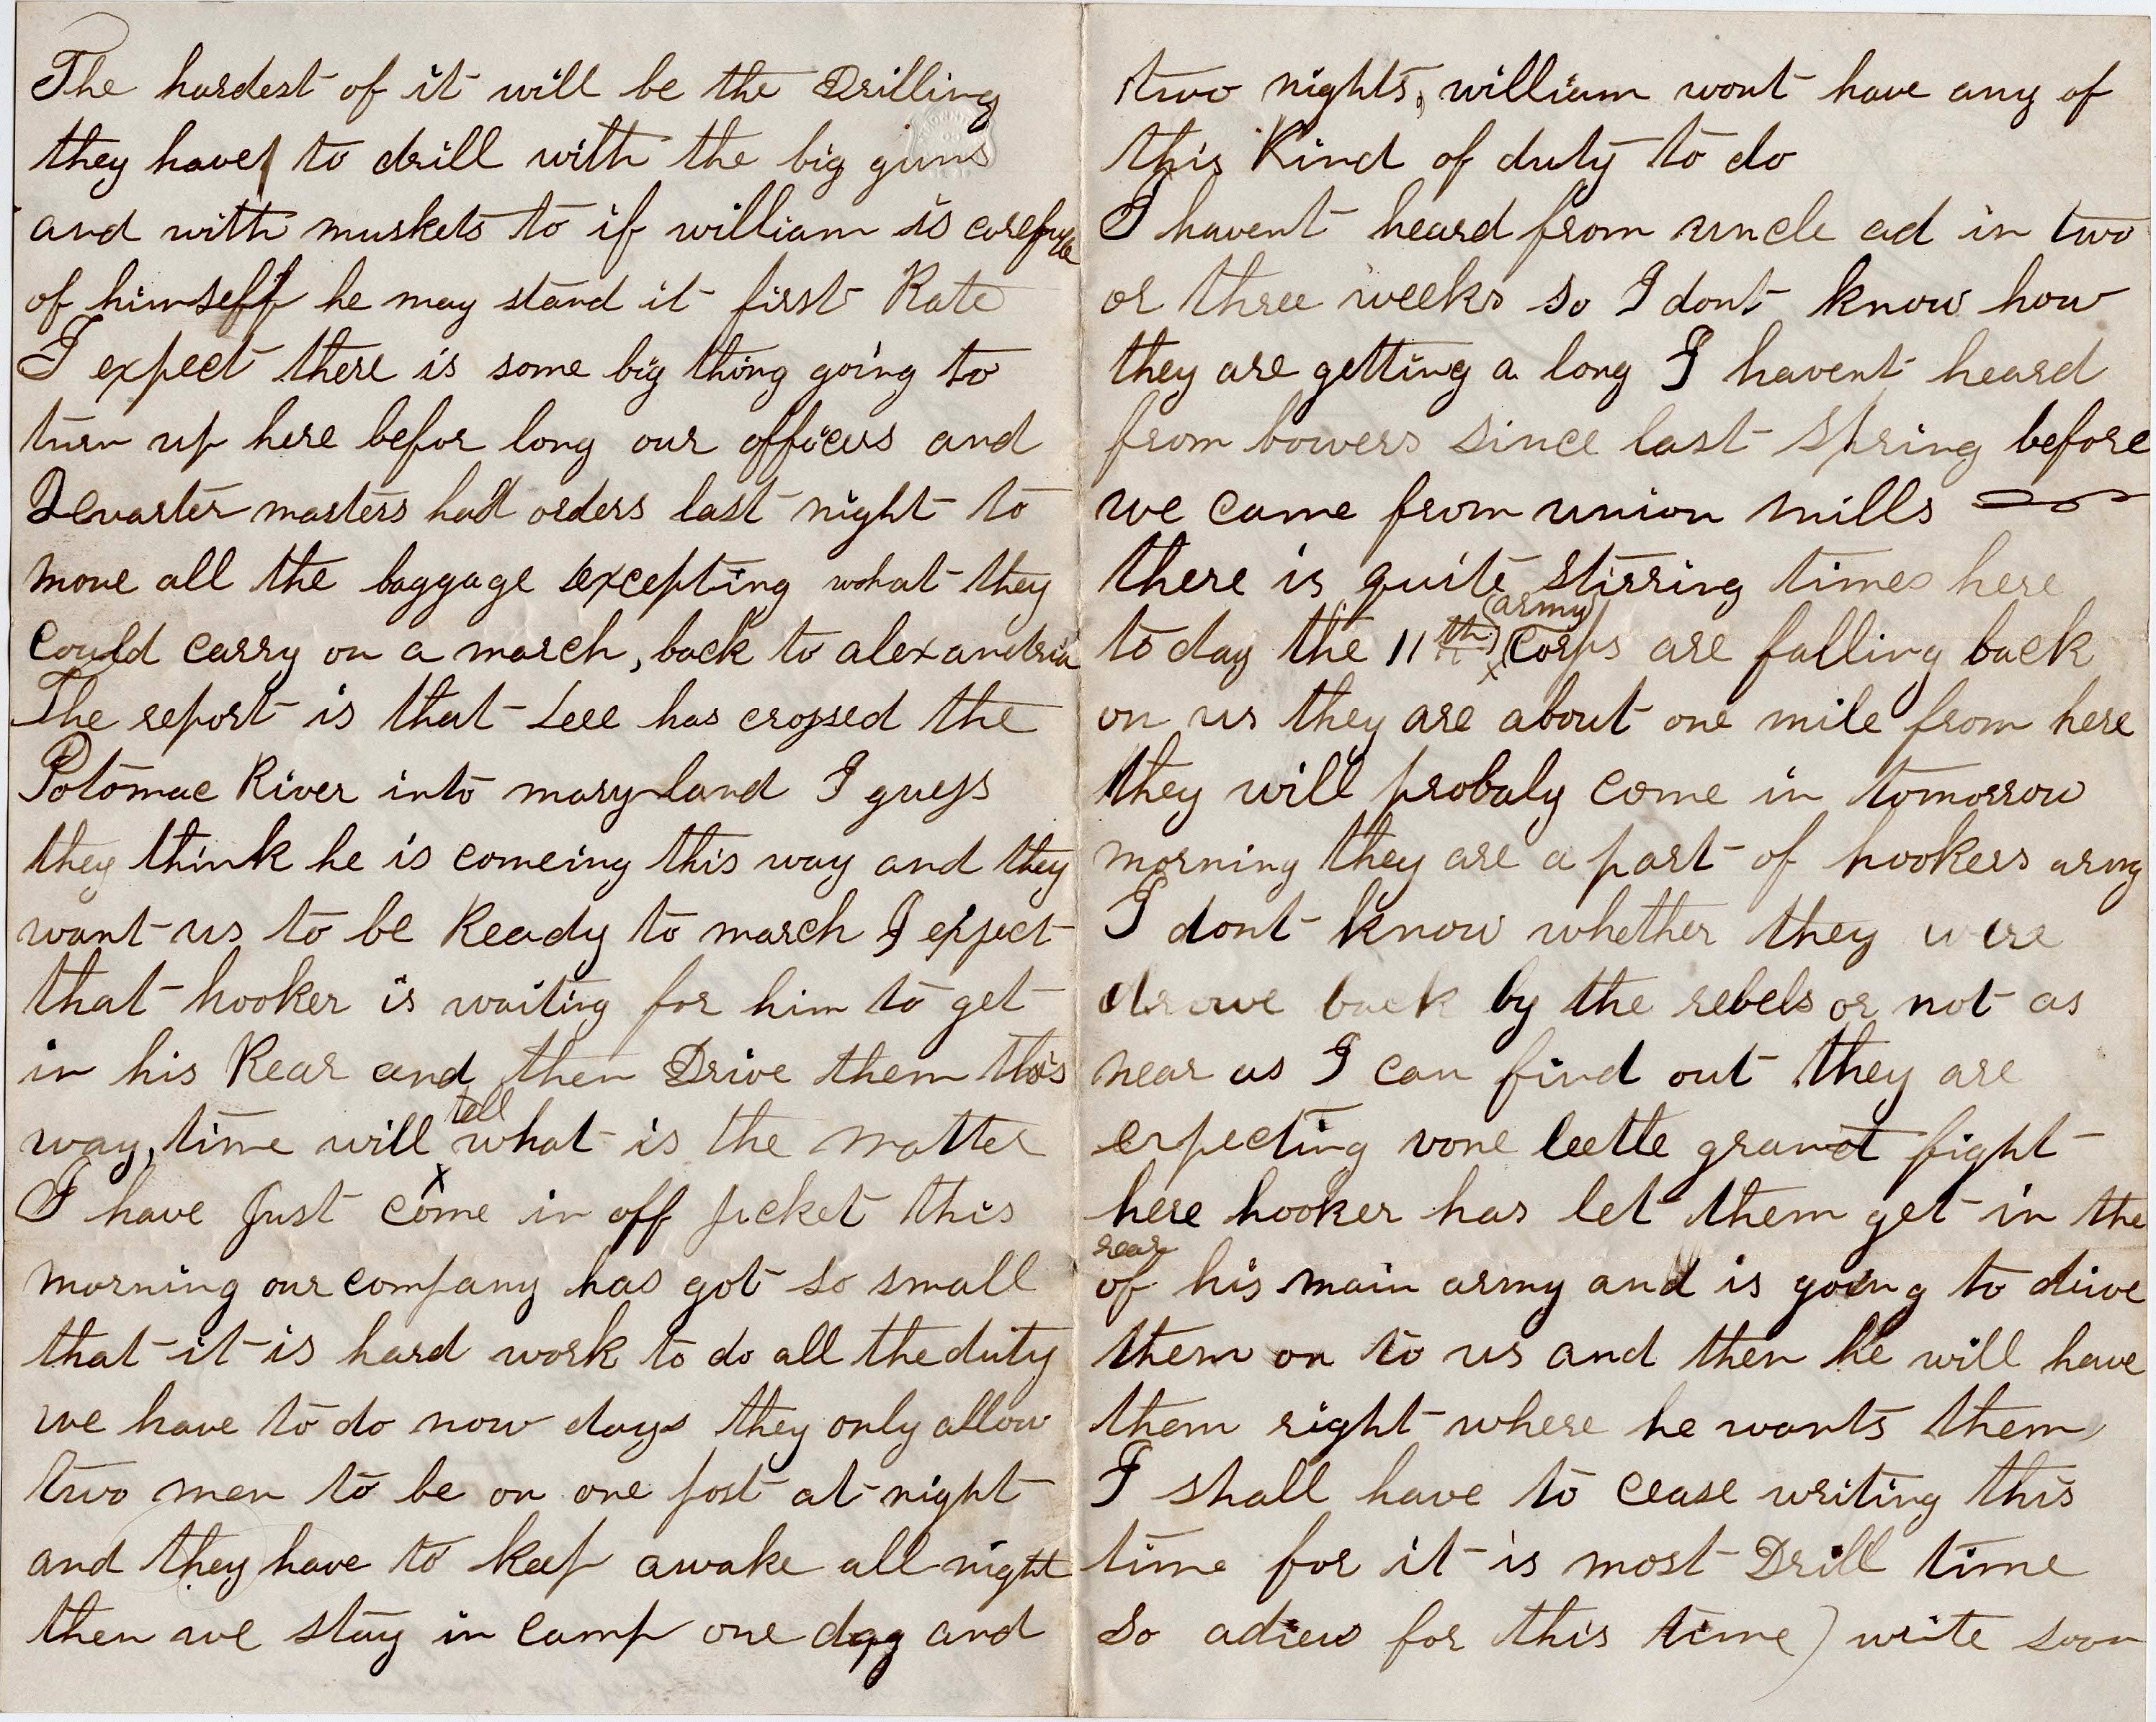 The hardest of it will be the Drilling
they have to drill with the big guns
and with muskets to if william is carefull
of himself he may stand it first Rate
I expect there is some big thing going to
turn up here befor long our officers and
Quarter masters had orders last night to
move all the baggage excepting what they
could carry on a march, back to alexandria
The report is that Leee has crossed the
Potomac River into maryland I guess
they think he is comeing this way and they
want us to be Ready to march I expect
that hooker is waiting for him to get
in his Rear and then Drive them this
way, time will tell what is the matter
I have Just come in off picket this
morning our company has got so small
that it is hard work to do all the duty
we have to do now days they only allow
two men to be on one post at night
and they have to keep awake all night
then we stay in camp one day and
two nights, william wont have any of
this Kind of duty to do
I havent heard from uncle ad in two
or three weeks so I dont know how
they are getting a long I havent heard
from bowers since last spring before
we came from union mills
there is quite stirring times here
to day the 11th (army) corps are falling back
on us they are about one mile from here
they will probaly come in tomorrow
morning they are a part of hookers army
I dont know whether they were
drove back by the rebels or not as
near as I can find out they are
expecting vone leetle grand fight
here hooker has let them get in the
rear of his main army and is going to drive
them on to us and then he will have
them right where he wants them
I shall have to cease writing this
time for it is most Drill time
So adieu for this time) write soon